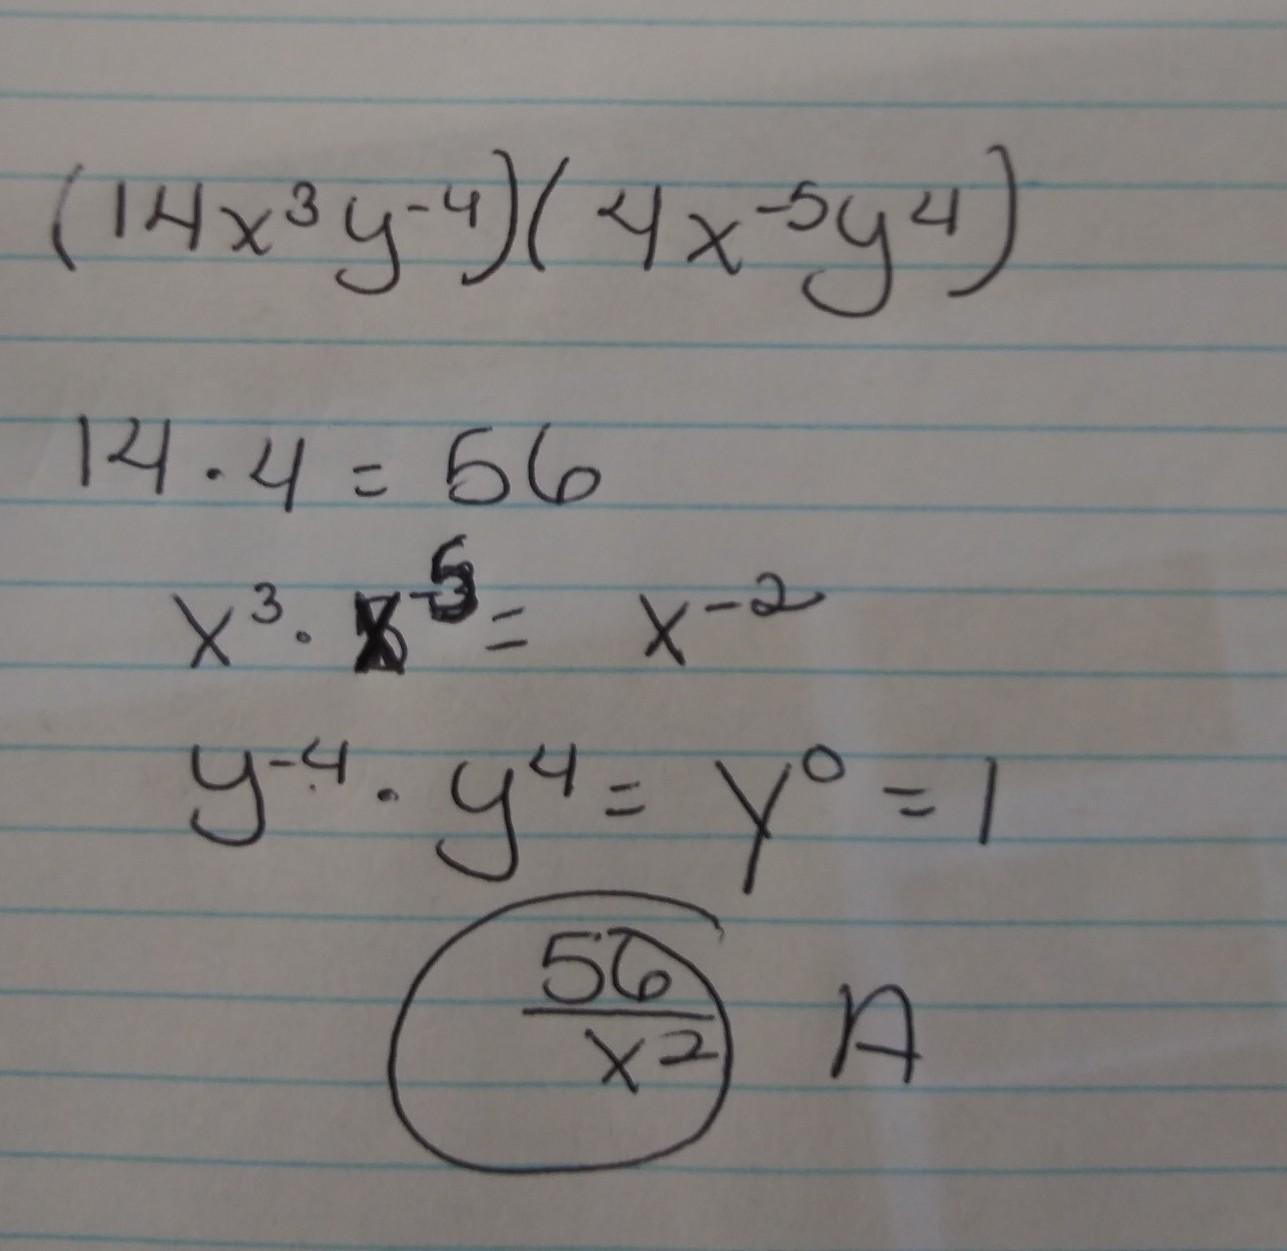 (14x³y⁻⁴)(4x⁻⁵y⁴)
14 · 4 = 56
x³ · x⁻⁵ = x⁻²
y⁻⁴ · y⁴ = y⁰ = 1
56/x² A